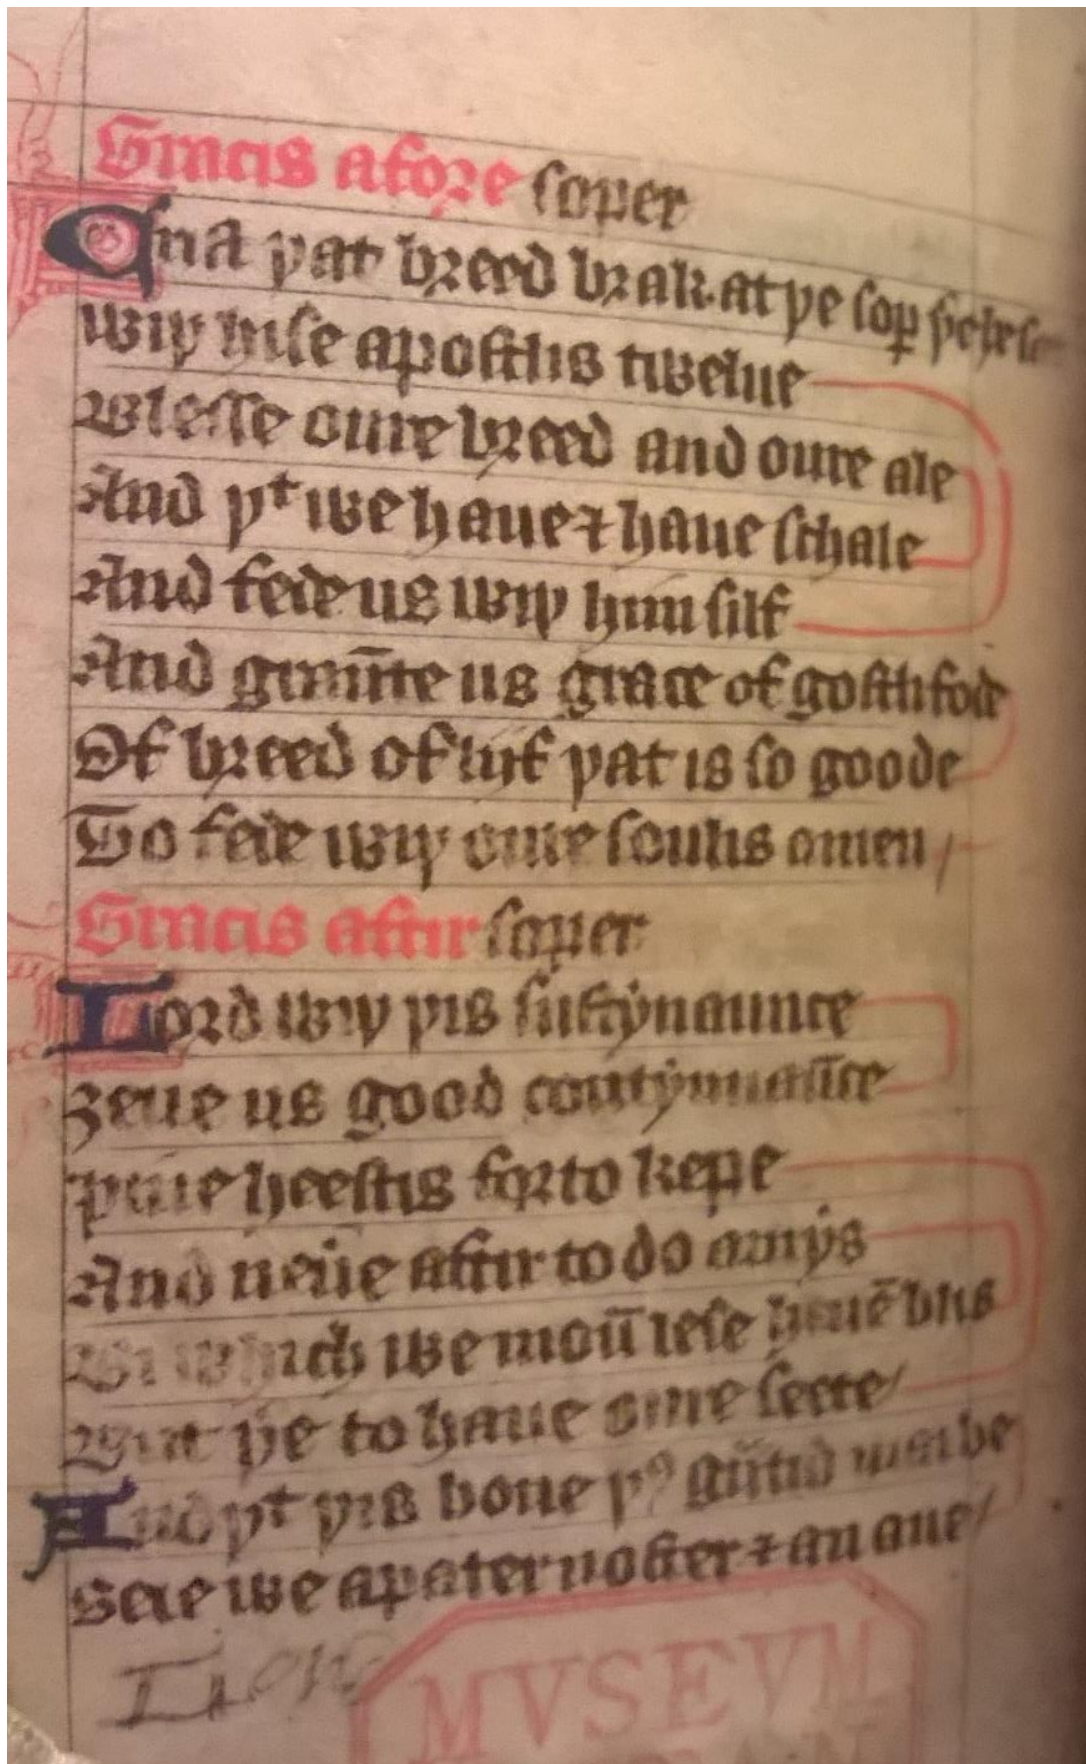 Gracis afore soper
þat breed brak at þe soper
wiþ hise apostlis twelue
Blesse oure breed and oure ale
And þt we haue ⁊ haue schale
And fede us wiþ him silf
And graūnte us grace of gostli fode
Of breed of lijf þat is so goode
To fede wiþ oure soulis amen /
Gracis aftir soper
Lord wiþ þis sustẏnaunce
Ȝeue us good contẏnuaūce
þine heestis for to kepe
And neuͥe aftir to do amẏs
Bi which we moū lese heuē blis
But þe to haue oure seete /
And þt þis bone þꝰ gūtid mai be
Seie we a pater noster ⁊ an aue /
MVSEVM